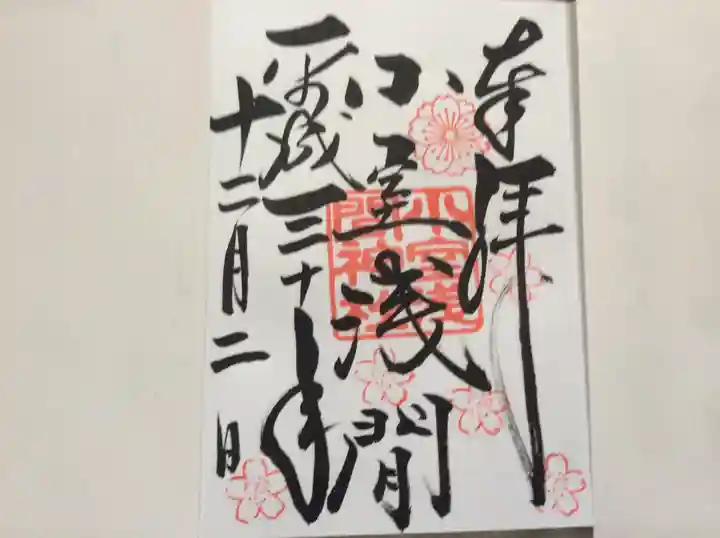 奉拝
小室浅間
小室浅間神社
平成三十年
十二月二日